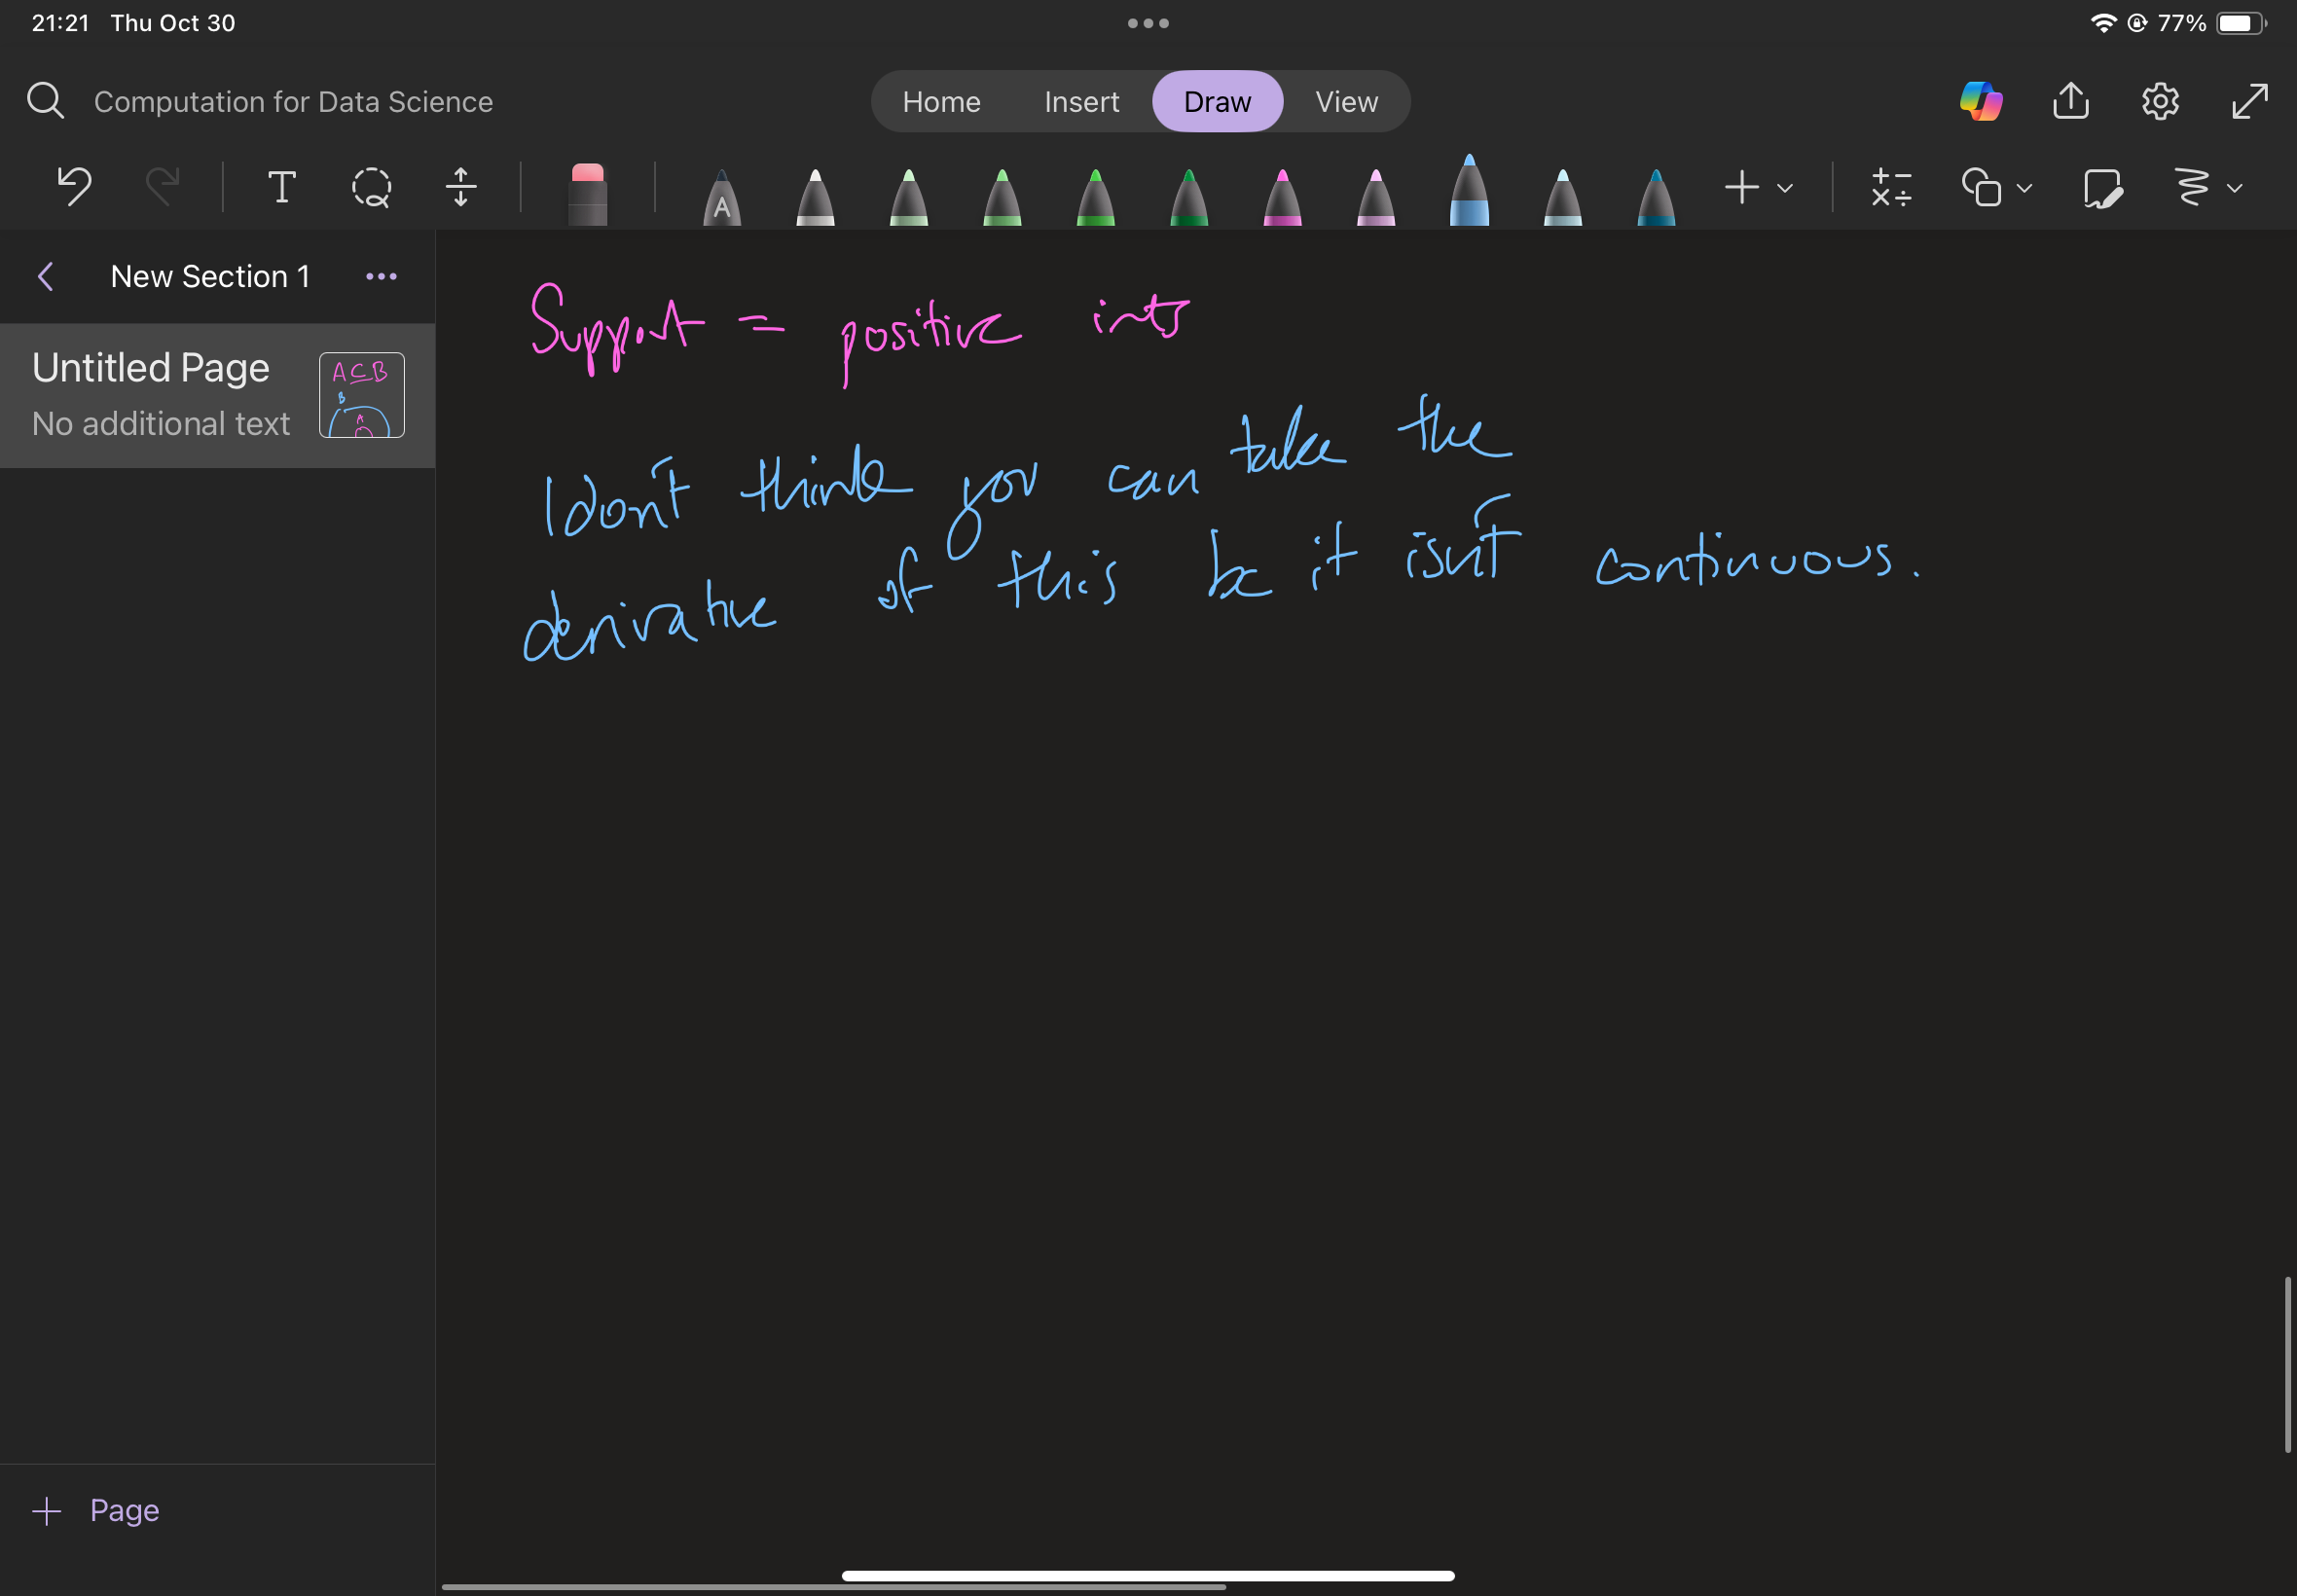 21:21 Thu Oct 30
77%
Computation for Data Science
Home Insert Draw View
T
A
New Section 1
Untitled Page
No additional text
A ⊆ B
B
A
Support = positive ints
I don't think you can take the
derivative of this bc it isn't continuous.
Page